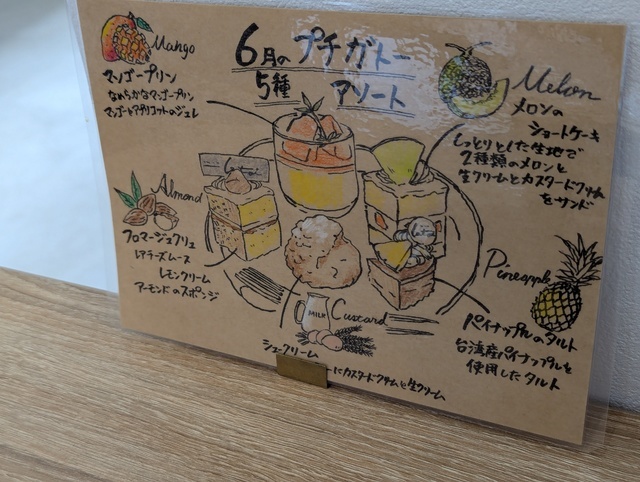 6月のプチガトー
5種 アソート
Mango
マンゴープリン
なめらかなマンゴープリン
マンゴーとアプリコットのジュレ
Melon
メロンの
ショートケーキ
しっとりとした生地で
2種類のメロンと
生クリームとカスタードクリーム
をサンド
Almond
フロマージュクリュ
レアチーズムース
レモンクリーム
アーモンドのスポンジ
Pineapple
パイナップルのタルト
台湾産パイナップルを
使用したタルト
MILK
Custard
シュークリーム
にカスタードクリームと生クリーム